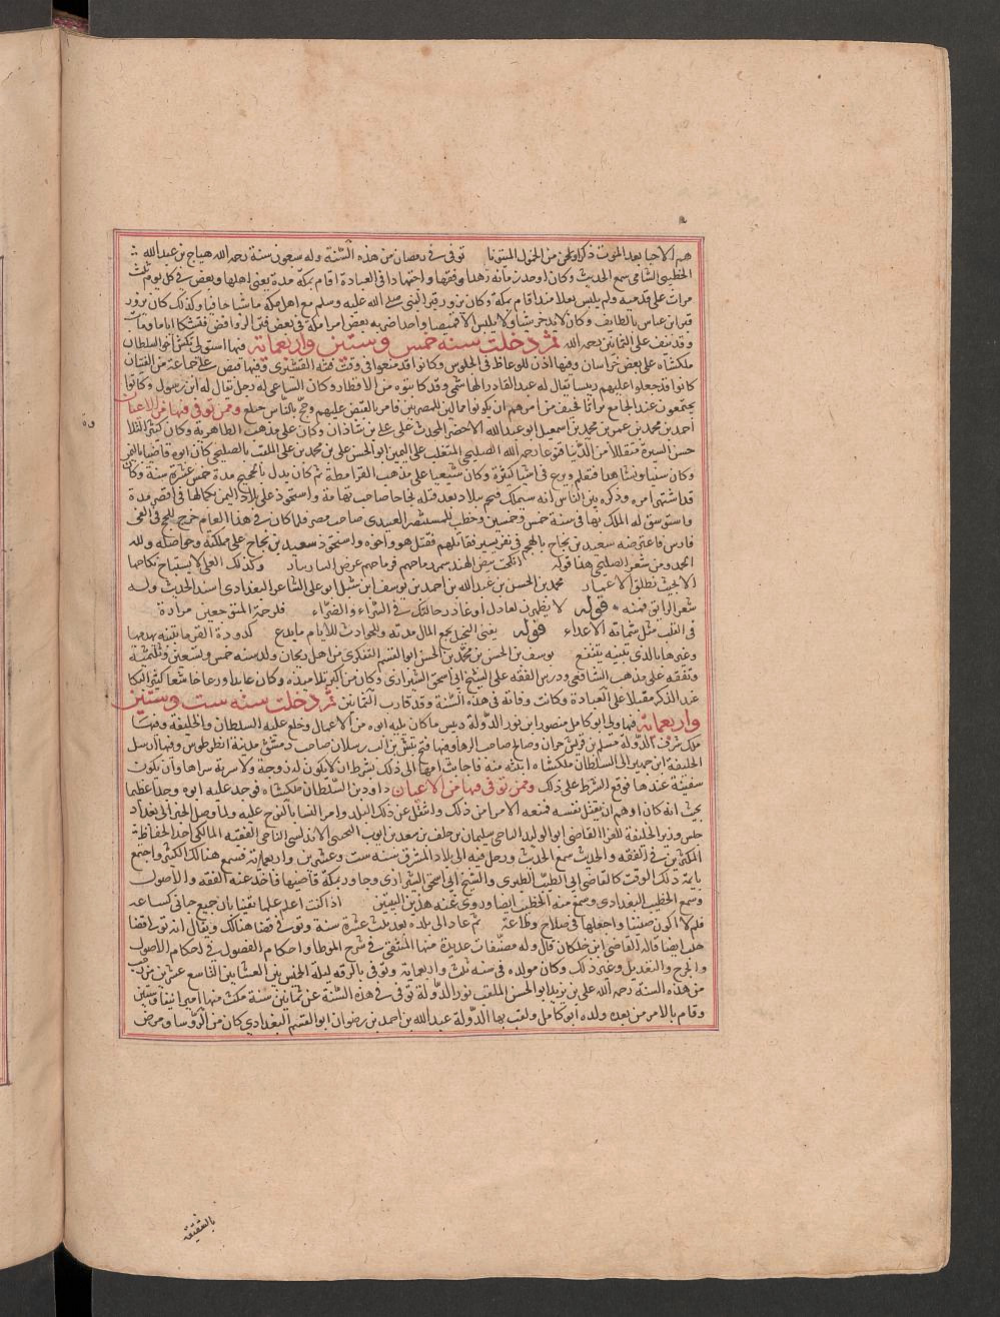 هم الاحبا بعد الموت ذكرا ونحن من الخمول الميتونا توفى فى رمضان من هذه السنة وله سبعون سنة رحمه الله هياج بن عبد الله
الخطيبى الشامى سمع الحديث وكان اوحد زمانه زهدا وفقها واجتهادا فى العبادة اقام بمكة مدة يفتى اهلها ويعتمر فى كل يوم ثلث
مرات على قدميه ولم يلبس نعلا منذ اقام بمكة وكان يزور قبر النبى صلى الله عليه وسلم مع اهل مكة ماشيا حافيا وكذلك كان يزور
قبر ابن عباس بالطايف وكان لا يدخر شيا ولا يلبس الا قميصا واحدا ضربه بعض امرا مكة فى بعض فتن الروافض فاشتكا اياما ومات
وقد نيف على الثمانين رحمه الله ثم دخلت سنة خمس وستين واربعمائة فيها استولى تكش اخو السلطان
ملكشاه على بعض خراسان وفيها اذن للوعاظ فى الجلوس وكانوا قد منعوا فى وقت فتنة القشيرى وفيها قبض على جماعة من الفتيان
كانوا قد جعلوا عليهم رييسا يقال له عبد القادر الهاشمى وقد كاتبوه من الاقطار وكان الساعى له رجل يقال له ابن رسول وكانوا
يجتمعون عند الجامع براثا فخيف من امرهم ان يكونوا ممالين للمصريين فامر بالقبض عليهم وحج بالناس جنفل وممن توفى فيها من الاعيان
احمد بن محمد بن عمر بن محمد بن اسمعيل ابو عبد الله الاخضر المحدث على على بن شاذان وكان على مذهب الظاهرية وكان كثير التلا
حسن السيرة متقللا من الدنيا قنوعا رحمه الله الصليحى المتغلب على اليمن ابو الحسن على بن محمد بن على الملقب بالصليحى كان ابوه قاضيا باليمن
وكان سنيا ونشا هذا فتعلم وبرع فى اشيا كثيرة وكان شيعيا على مذهب القرامطة ثم كان يدل بالحجيج مدة خمس عشرة سنة وكان
قد اشتهر امره وذكره بين الناس انه سيملك فنجم ببلاد بعد قتله نجاحا صاحب تهامة واستحوذ على بلاد اليمن بكمالها فى اقصر مدة
واستوسق له الملك بها فى سنة خمس وخمسين وخطب للمستنصر العبيدى صاحب مصر فلما كان فى هذا العام خرج للحج فى الفى
فارس فاعترضه سعيد بن نجاح بالهجم فى نفر يسير فقاتلهم فقتل هو واخوه واستحوذ سعيد بن نجاح على مملكته وحواصله ولله
الحمد ومن شعر الصليحى هذا قوله انكحت بيض الهند سمر رماحهم فروسهم عرض النثار نثار وكذلك العلى لا يستباح نكاحها
الا بحيث تطلق الاعمار محمد بن الحسن بن عبد الله بن احمد بن يوسف ابن شبل ابو على الشاعر البغدادى اسند الحديث وله
شعر الرايق فمنه قوله لا يظهرن لعادل او غادر حاليك فى السراء والضراء فلرحمة المتوجعين مرارة
فى القلب مثل شماتة الاعداء قوله يفنى البخيل بجمع المال مدته وللحوادث للايام ما يدع كدودة القز ما تبنيه يهدمها
وغيرها بالذى تبنيه ينتفع يوسف بن الحسن بن محمد بن الحسن ابو القسم التفكرى من اهل زنجان ولد سنة خمس وتسعين وثلثمية
وتفقه على مذهب الشافعى ودرس الفقه على الشيخ ابى اسحق الشيرازى وكان من اكبر تلاميذه وكان عابدا ورعا خاشعا كثير البكا
عند الذكر مقبلا على العبادة وكانت وفاته فى هذه السنة وقد قارب الثمانين ثم دخلت سنة ست وستين
واربعمائة فيها ولى ابو كامل منصور ابن نور الدولة دبيس ما كان يليه ابوه من الاعمال وخلع عليه السلطان والخليفة وفيها
ملك شرف الدولة مسلم بن قريش حران وصالح صاحب الرها وفيها فتح تتش بن الب رسلان صاحب دمشق مدينة انطرطوس وفيها ارسل
الخليفة ابن جهير الى السلطان ملكشاه ابنته منه فاجابت امها الى ذلك بشرط ان لا يكون له زوجة ولا سرية سواها وان يكون
سفينة عندها فوقع الشرط على ذلك وممن توفى فيها من الاعيان داود بن السلطان ملكشاه فوجد عليه ابوه وجدا عظيما
بحيث انه كان او هم ان يقتل نفسه فمنعه الامرا من ذلك وانتقل عن ذلك البلد وامر النسا بالنوح عليه ولما وصل الخبر الى بغداد
جلس وزير الخليفة للعزا القاضى ابو الوليد الباجى سليمان بن خلف بن سعد بن ايوب التجيبى الاندلسى الباجى الفقيه المالكى احد الحفاظ
المكثرين فى الفقه والحديث سمع الحديث ورحل فيه الى بلاد المشرق سنة ست وعشرين واربعماية فسمع هنالك الكثير واجتمع
بايمة ذلك الوقت كالقاضى ابى الطيب الطبرى والشيخ ابى اسحق الشيرازى وجاور بمكة فاخذ عنه الفقه والاصول
وسمع الخطيب البغدادى وسمع منه الخطيب ايضا وروى عنه هذين البيتين اذا كنت اعلم علما يقينا بان جميع حياتى كساعه
فلم لا اكون ضنينا واجعلها فى صلاح وطاعة ثم عاد الى بلده بعد ثلث عشرة سنة وتولى قضا هنالك ويقال انه تولى قضا
حلب ايضا قاله القاضى ابن خلكان قال وله مصنفات عديدة منها المنتقى فى شرح الموطا واحكام الفصول فى احكام الاصول
والجرح والتعديل وغير ذلك وكان مولده فى سنة ثلث واربعماية وتوفى بالرقة ليلة الخميس بين العشايين التاسع عشر من رجب
من هذه السنة رحمه الله على بن يزيد ابو الحسن الملقب نور الدولة توفى فى هذه السنة عن ثمانين سنة مكث منها اميرا نيفا وستين
وقام بالامر من بعده ولده ابو كامل ولقب بهاء الدولة عبد الله بن احمد بن رضوان ابو القسم البغدادى كان من الروسا ومرض
بالشقيقة